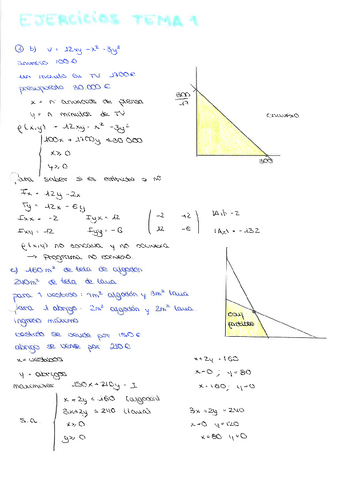 EJERCICIOS TEMA 1
② b) V = 12xy - x² - 3y²
anuncio 100€
un minuto en TV 1700€
presupuesto 30.000€
x = n anuncios de prensa
y = n minutos de TV
f(x,y) = 12xy - x² - 3y²
100x + 1700y ≤ 30 000
x ≥ 0
y ≥ 0
300/17
300
convexo
para saber si es
Fx = 12y - 2x
Fy = 12x - 6y
Fxx = -2 Fyx = 12
Fxy = 12 Fyy = -6
-2 12
12 -6
|A₁| = -2
|A₂| = -132
f(x,y) no concava y no convexa
→ Programa no convexo
c) 160m² de tela de algodón
240m² de tela de lana
para 1 vestido: 1m² algodón y 3m² lana
para 1 abrigo: 2m² algodón y 2m² lana
ingreso máximo
vestido se vende por 150€
abrigo se vende por 210€
x = vestidos
y = abrigos
maximizar 150x + 210y
s.a
x + 2y ≤ 160 (algodón)
3x + 2y ≤ 240 (lana)
x ≥ 0
y ≥ 0
conj
factible
x + 2y = 160
x = 0, y = 80
x = 160, y = 0
3x + 2y = 240
x = 0 y = 120
x = 80 y = 0